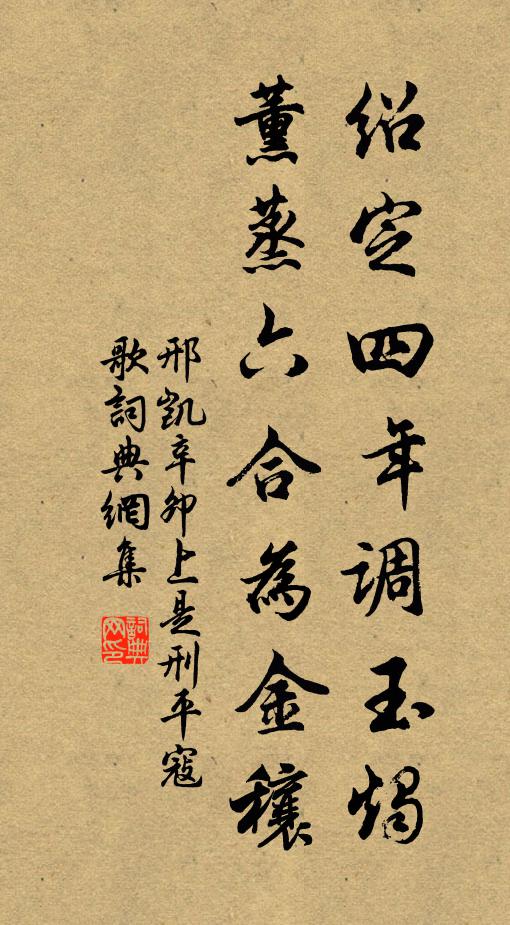 绍定四年调玉烛
薰蒸六合為金穰
邢凯辛卯上是刑平寇
歌詞典網集
詞典网印